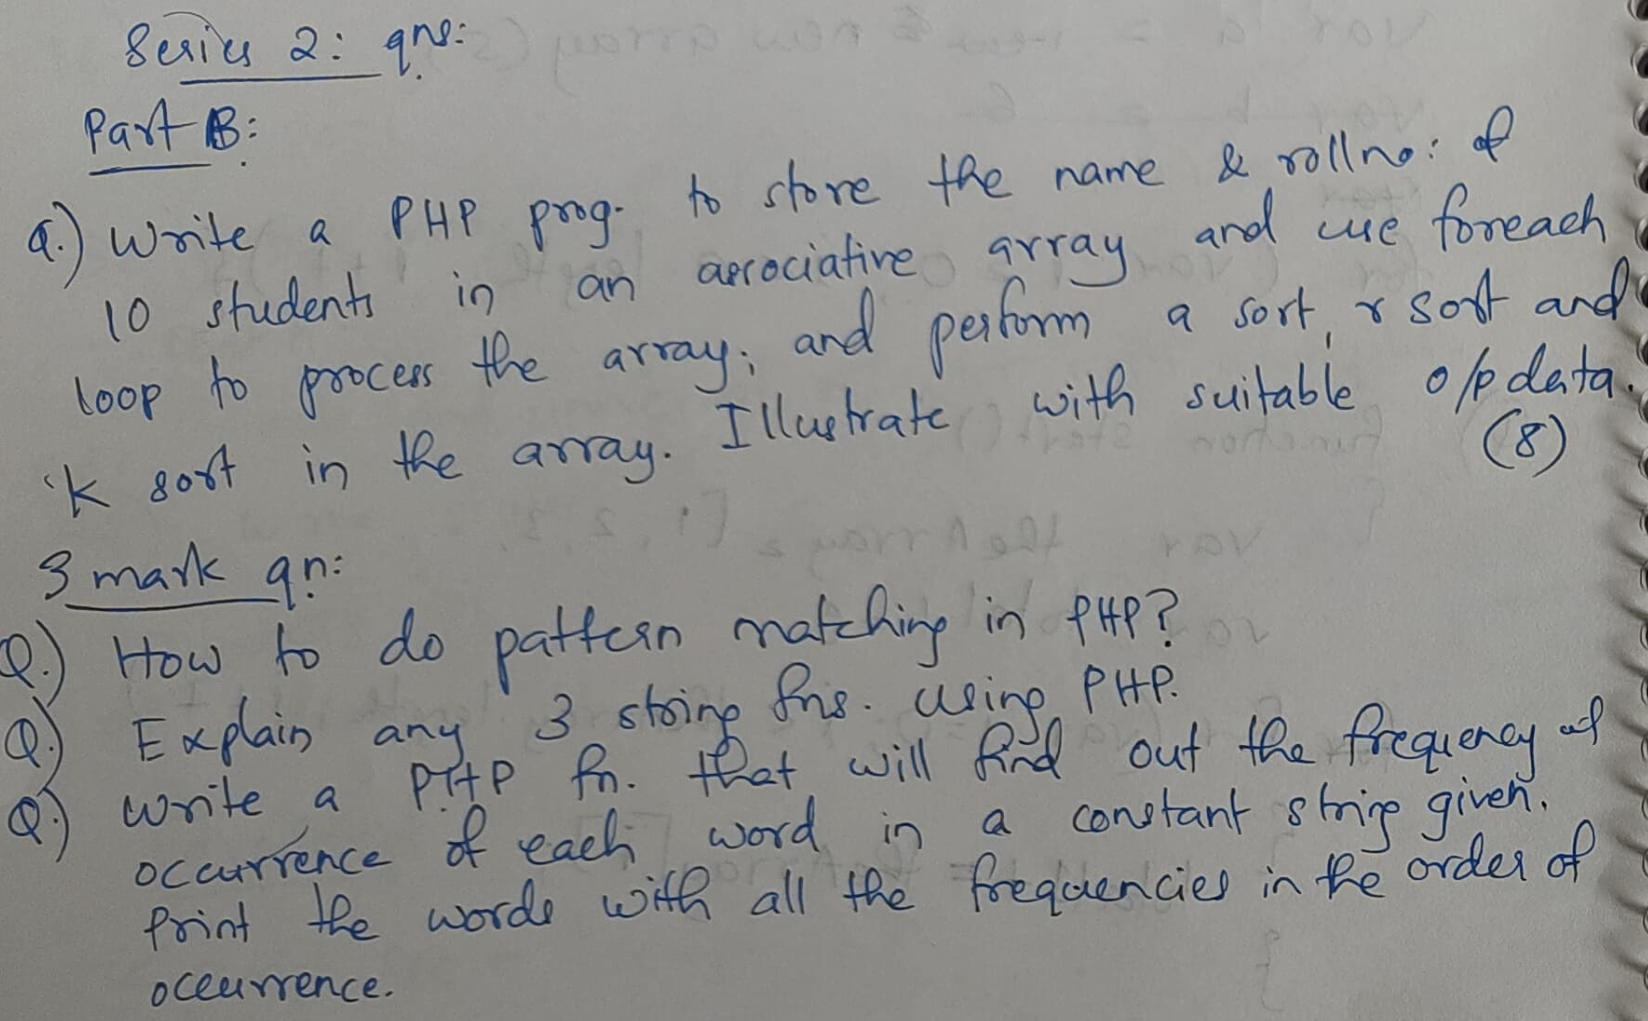 Series 2: qns:
Part B:
Q.) Write a PHP prog. to store the name & rollno: of
10 students in an associative array and use foreach
loop to process the array; and perform a sort, r sort and
'k sort in the array. Illustrate with suitable o/p data.
(8)
3 mark qn:
Q.) How to do pattern matching in PHP?
Q.) Explain any 3 string fns. using PHP.
Q.) Write a PHP fn. that will find out the frequency of
occurrence of each word in a constant string given.
Print the words with all the frequencies in the order of
occurrence.